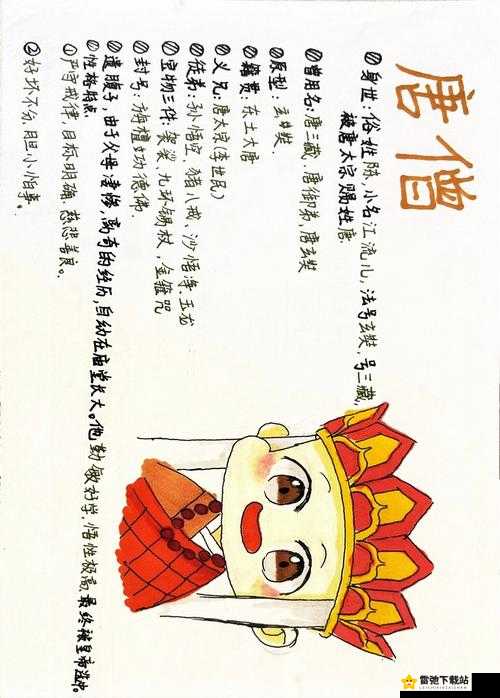 唐僧
①身世：俗姓陈，小名江流儿，法号玄奘，号三藏，
被唐太宗赐姓唐
②曾用名：唐三藏，唐御弟，唐玄奘
③原型：玄奘
④籍贯：东土大唐
⑤义兄：唐太宗(李世民)
⑥徒弟：孙悟空、猪八戒、沙悟净、玉龙
⑦宝物三件：袈裟，九环锡杖，金箍咒
⑧封号：旃檀功德佛.
遗腹子，由于父母凄惨，离奇的经历，自幼在庙堂长大。他勤敏好学，悟性极高，最终被皇帝选中。
性格特点
①严守戒律，目标明确，慈悲善良。
②好坏不分，胆小怕事。
雷弛下载站